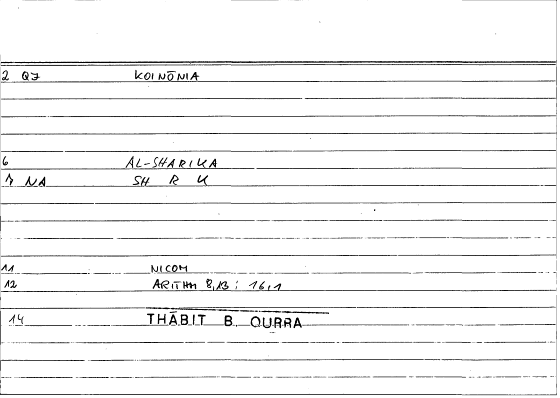 2 QJ KOINŌNIA
6 AL-SHARIKA
7 NA SH R K
11 NICOM
12 ARITHM 8,13 : 16,1
14 THĀBIT B. QURRA